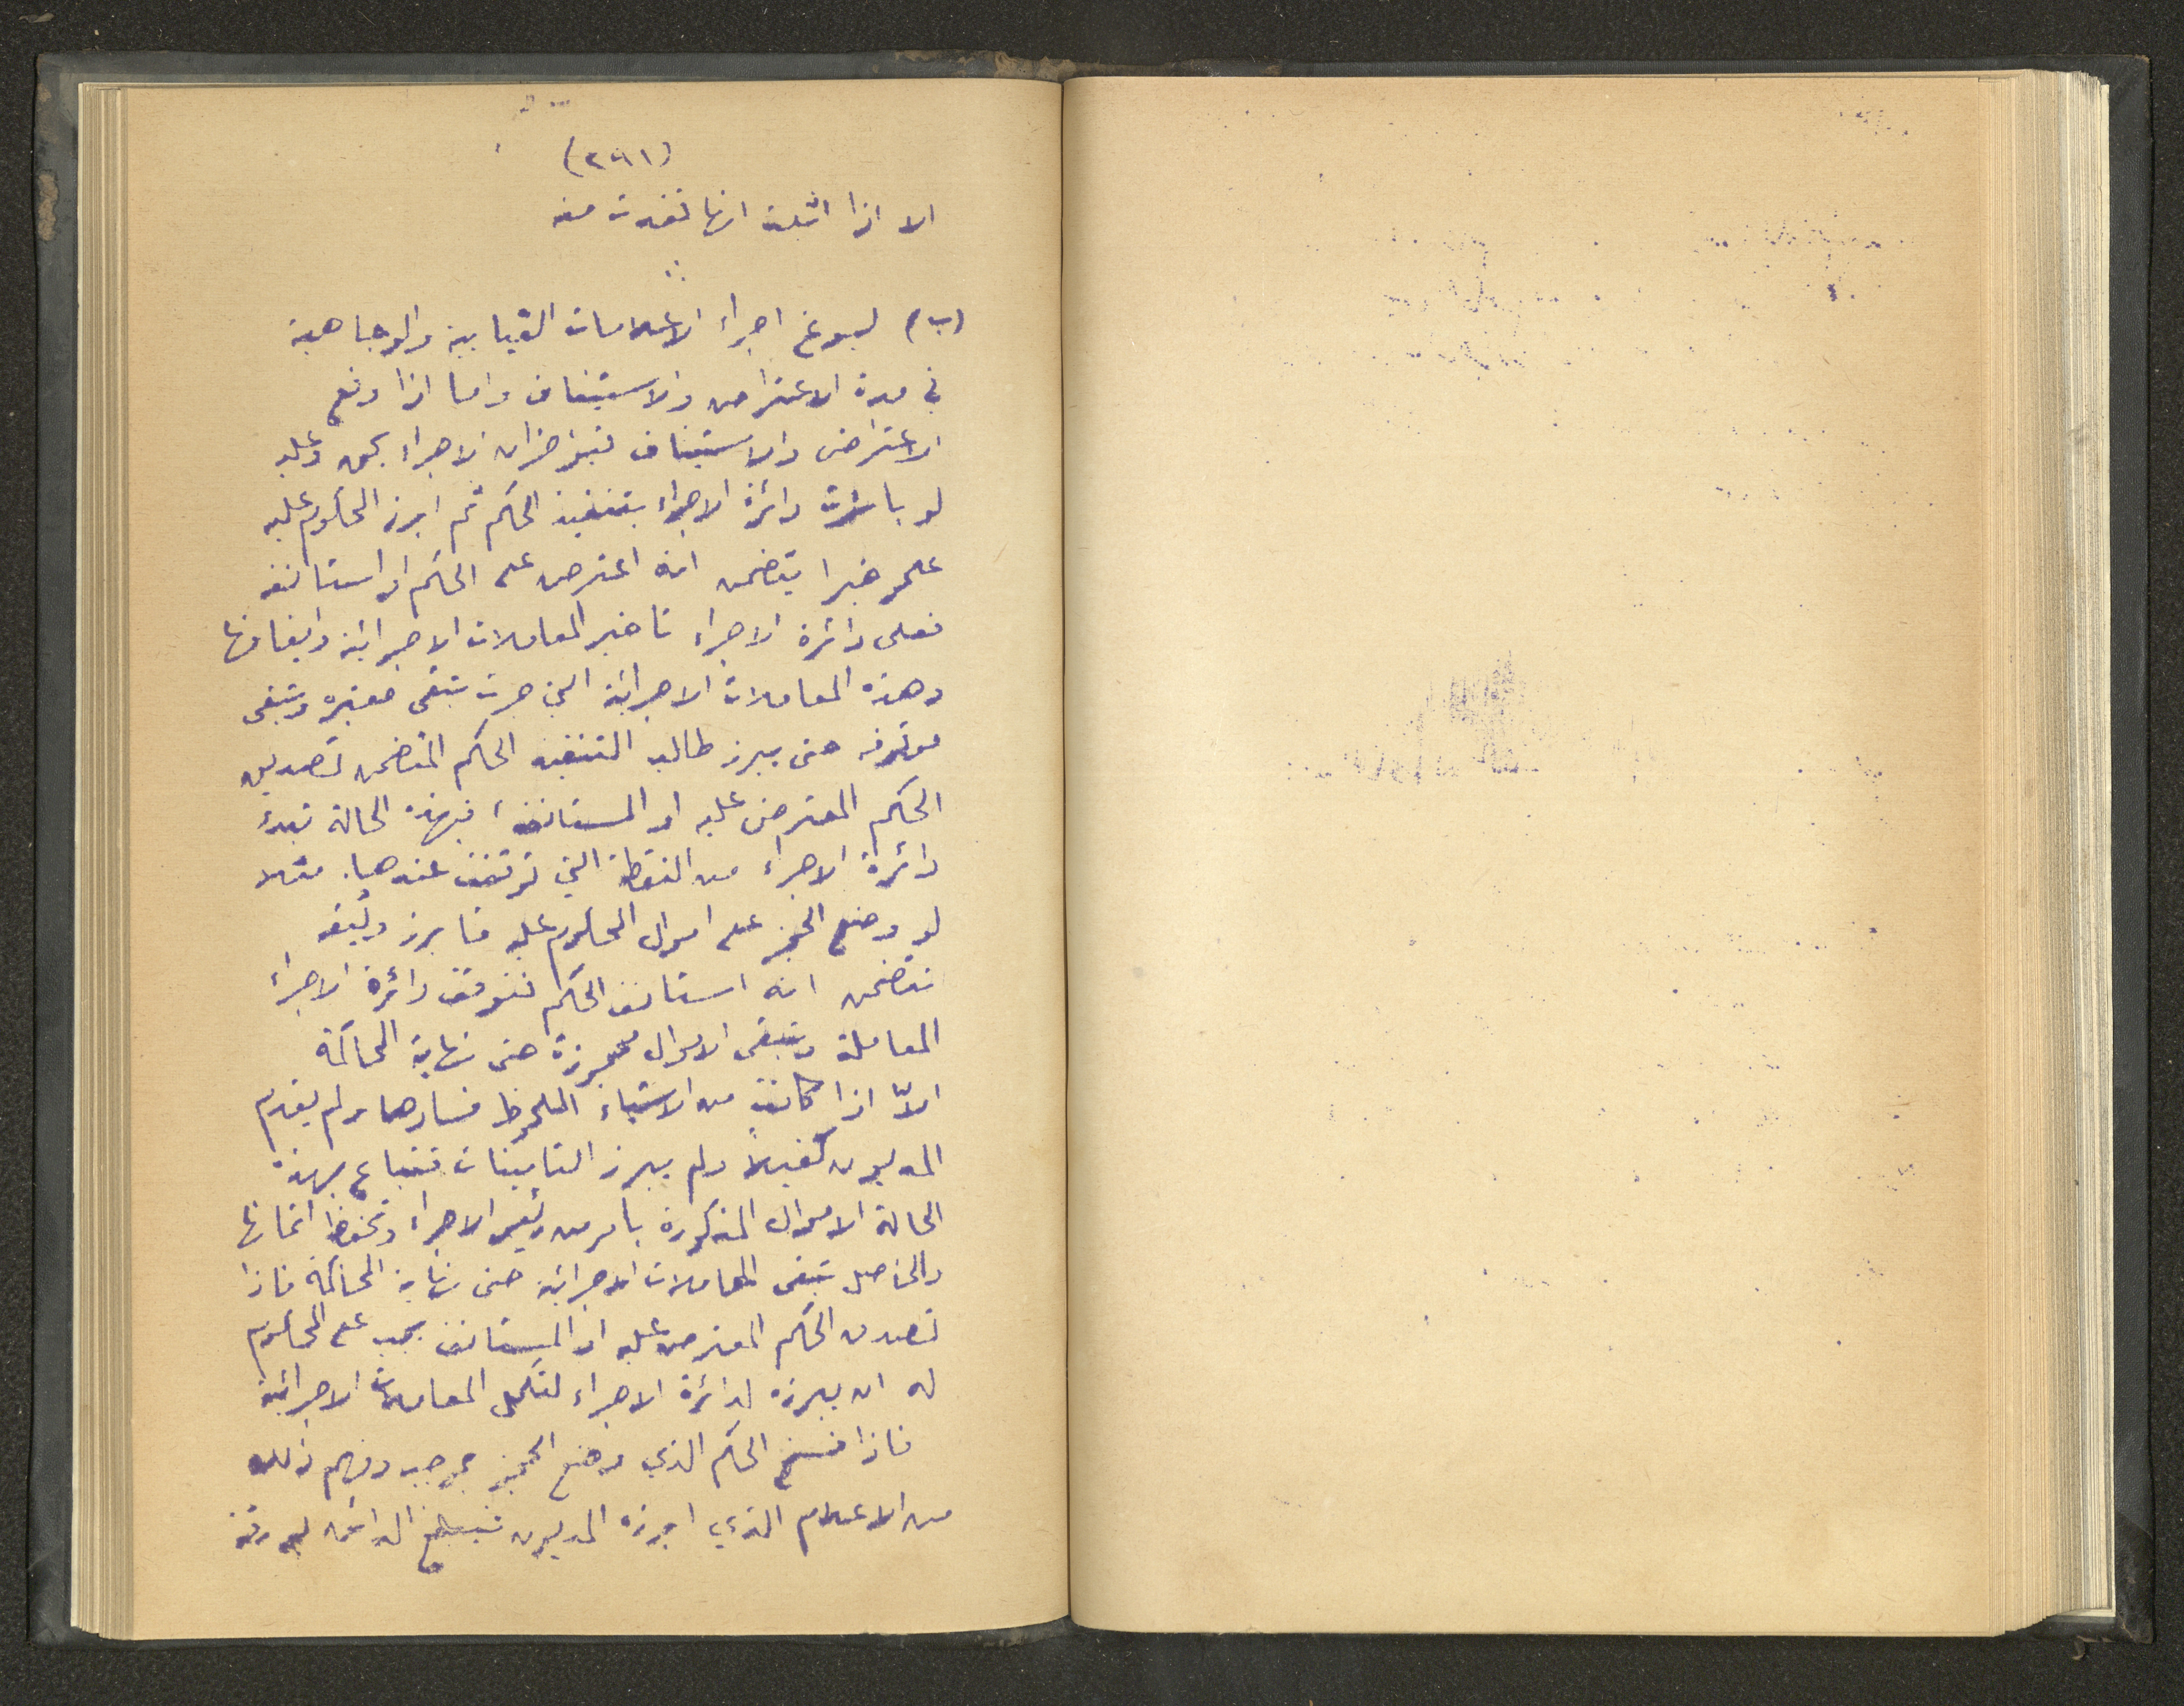 (٢٩١)
الا اذا اثبت انها نفدت منه
(ب) يسوغ اجراء الاعلامات الغيابية والوجاهية
في مدة الاعتراض والاستيناف واما اذا وقع
الاعتراض والاستيناف فيؤخران الاجراء بحق وعليه
لو باشرت دائرة الاجراء بتنفيذ الحكم ثم ابرز المحكوم عليه
علم وخبرا يتضمن انه اعترض على الحكم او استانفه
فعلى دائرة الاجراء تاخير المعاملات الاجرائية وايقافها
وهذه المعاملات الاجرائية التي جرت تبقى معتبره وتبقى
موقوفه حتى يبرز طالب التنفيذ الحكم المتضمن تصديق
الحكم المعترض عليه او المستانف، فبهذه الحالة تبدء
دائرة الاجراء من النقطة التي توقفت عندها. مثلا
لو وضع الحجز على اموال المحكوم عليه فابرز وثيقه
تتضمن انه استانف الحكم فتوقف دائرة الاجراء
المعاملة وتبقى الاموال محجوزة حتى نهاية المحاكمة
الاّ اذا كانت من الاشياء الملحوظ فسادها ولم يقدم
المديون كفيلاً ولم يبرز التامينات فتباع بهذه
الحالة الاموال المذكورة بامر من رئيس الاجراء وتحفظ اثمانها
والحاصل تبقى المعاملات الاجرائية حتى نهاية المحاكمة فاذا
تصدق الحكم المعترض عليه او المستانف يجب على المحكوم
له ان يبرزه لدائرة الاجراء لتكمل المعاملات الاجرائية
فاذا فسخ الحكم الذي وضع الحجز بموجبه وفهم ذلك
من الاعلام الذي ابرزه المديون فيبلغ الدائن بورقة